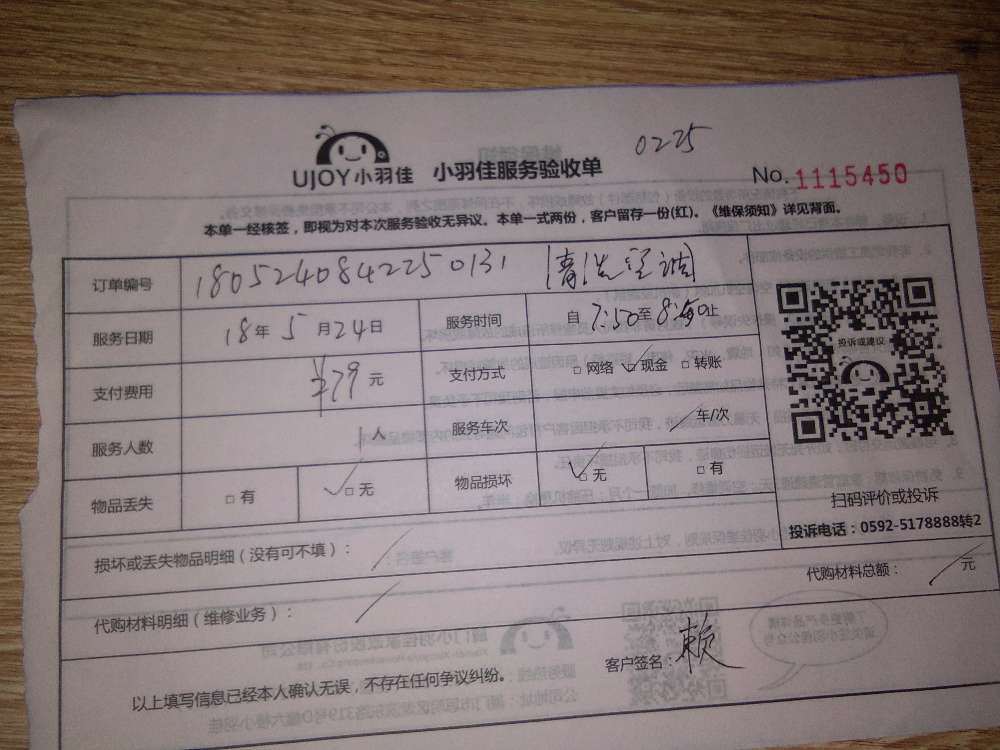 0225
UJOY小羽佳 小羽佳服务验收单
No. 1115450
本单一经核签，即视为对本次服务验收无异议。本单一式两份，客户留存一份(红)。《维保须知》详见背面。
订单编号 180524084225 0131 清洗空调
服务日期 18年5月24日 服务时间 自7:50至8:50止
支付费用 ¥79元 支付方式 □网络 ☑现金 □转账
服务人数 1人 服务车次 / 车/次
物品丢失 □有 ☑无 物品损坏 ☑无 □有
投诉或建议
扫码评价或投诉
投诉电话：0592-5178888转2
损坏或丢失物品明细（没有可不填）： /
代购材料明细（维修业务）： / 代购材料总额： / 元
以上填写信息已经本人确认无误，不存在任何争议纠纷。 客户签名：赖